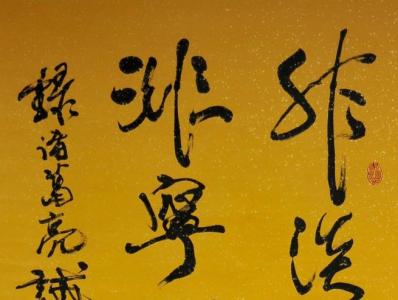 非淡
非寧
錄諸葛亮誡